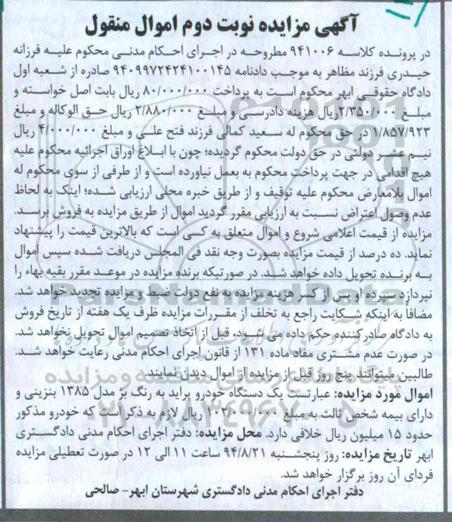 آگهی مزایده نوبت دوم اموال منقول
در پرونده کلاسه ۹۴۱۰۰۶ مطروحه در اجرای احکام مدنی محکوم علیه فرزانه
حیدری فرزند مظاهر به موجب دادنامه ۹۴۰۹۹۷۲۴۲۴۱۰۰۱۴۵ صادره از شعبه اول
دادگاه حقوقی ابهر محکوم است به پرداخت ۸۰/۰۰۰/۰۰۰ ریال بابت اصل خواسته و
مبلغ ۲/۳۵۰/۰۰۰ریال هزینه دادرسی و مبلغ ۲/۸۸۰/۰۰۰ ریال حق الوکاله و مبلغ
۱/۸۵۷/۹۲۳ در حق محکوم له سعید کمالی فرزند فتح علی و مبلغ ۴/۰۰۰/۰۰۰ ریال
نیم عشر دولتی در حق دولت محکوم گردیده؛ چون با ابلاغ اوراق اجرائیه محکوم علیه
هیچ اقدامی در جهت پرداخت محکوم به بعمل نیاورده است و از طرفی از سوی محکوم له
اموال بلامعارض محکوم علیه توقیف و از طریق خبره محلی ارزیابی شده؛ اینک به لحاظ
عدم وصول اعتراض نسبت به ارزیابی مقرر گردید اموال از طریق مزایده به فروش برسد.
مزایده از قیمت اعلامی شروع و اموال متعلق به کسی است که بالاترین قیمت را پیشنهاد
نماید. ده درصد از قیمت مزایده بصورت وجه نقد فی المجلس دریافت شده سپس اموال
به برنده تحویل داده خواهد شد. در صورتیکه برنده مزایده در موعد مقرر بقیه بهاء را
نپردازد سپرده او پس از کسر هزینه مزایده به نفع دولت ضبط و مزایده تجدید خواهد شد.
مضافا به اینکه شکایت راجع به تخلف از مقررات مزایده ظرف یک هفته از تاریخ فروش
به دادگاه صادرکننده حکم داده می شود، قبل از اتخاذ تصمیم اموال تحویل نخواهد شد.
در صورت عدم مشتری مفاد ماده ۱۳۱ از قانون اجرای احکام مدنی رعایت خواهد شد.
طالبین میتوانند پنج روز قبل از مزایده از اموال دیدن نمایند.
اموال مورد مزایده: عبارتست یک دستگاه خودرو پراید به رنگ بژ مدل ۱۳۸۵ بنزینی و
دارای بیمه شخص ثالث به مبلغ ۱۰۲/۰۰۰/۰۰۰ ریال لازم به ذکر است که خودرو مذکور
حدود ۱۵ میلیون ریال خلافی دارد. محل مزایده: دفتر اجرای احکام مدنی دادگستری
ابهر تاریخ مزایده: روز پنجشنبه ۹۴/۸/۲۱ ساعت ۱۱ الی ۱۲ در صورت تعطیلی مزایده
فردای آن روز برگزار خواهد شد.
دفتر اجرای احکام مدنی دادگستری شهرستان ابهر- صالحی